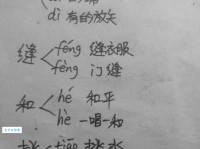 dì 有的放矢
缝 féng 缝衣服
fèng 门缝
和 hé 和平
hè 一唱一和
tiāo 挑水